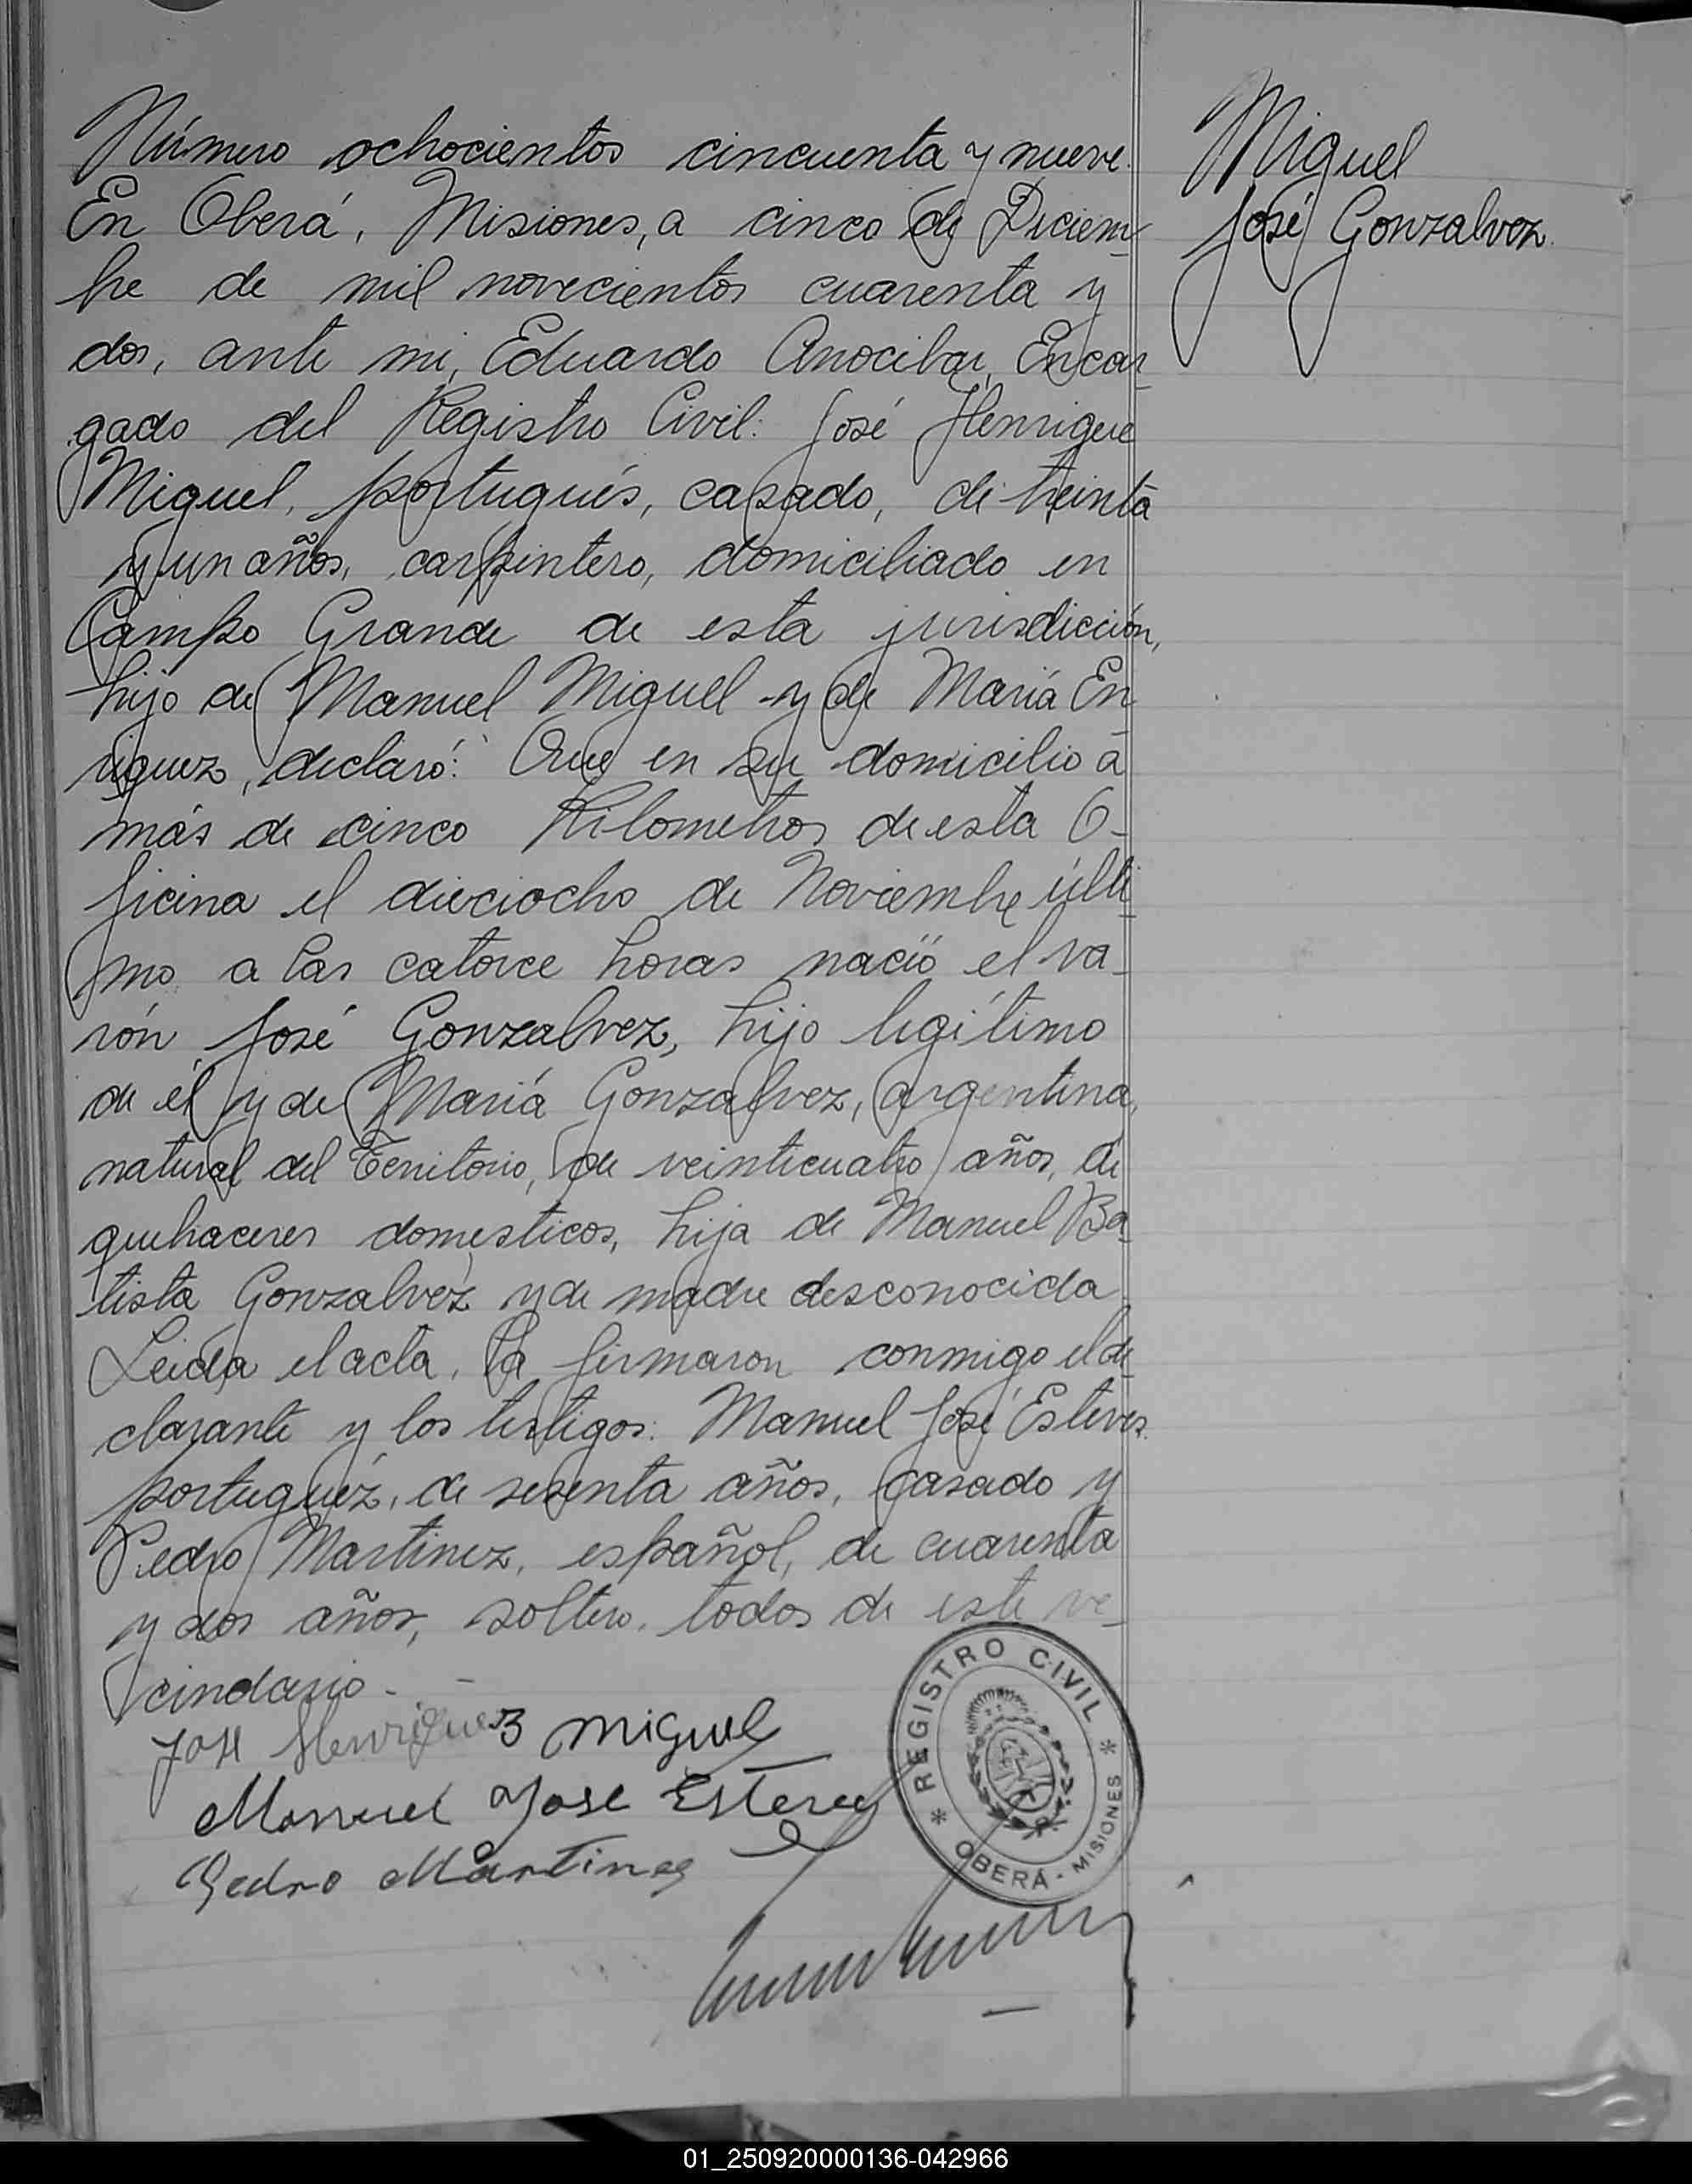 Número ochocientos cincuenta y nueve.
En Oberá, Misiones, a cinco de Diciem-
bre de mil novecientos cuarenta y
dos, ante mi, Eduardo Anocibar, Encar-
gado del Registro Civil: José Henrique
Miguel, portugués, casado, de treinta
y un años, carpintero, domiciliado en
Campo Grande de esta jurisdicción,
hijo de Manuel Miguel y de María En-
riquez, declaró: Que en su domicilio a
más de cinco Kilometros de esta O-
ficina el dieciocho de Noviembre últi-
mo a las catorce horas nació el va-
rón José Gonzalvez, hijo legítimo
de él y de María Gonzalvez, argentina,
natural del Territorio, de veinticuatro años, de
quehaceres domesticos, hija de Manuel Ba-
tista Gonzalvez y de madre desconocida
Leida el acta, la firmaron conmigo el de-
clarante y los testigos: Manuel José Esteves
portuguéz, de sesenta años, casado y
Pedro Martinez, español, de cuarenta
y dos años, soltero, todos de este ve-
cindario.-
José Henriquez Miguel
Manuel Jose Esteves
Pedro Martinez
Miguel
José Gonzalvez
* REGISTRO CIVIL *
OBERÁ - MISIONES
01_250920000136-042966